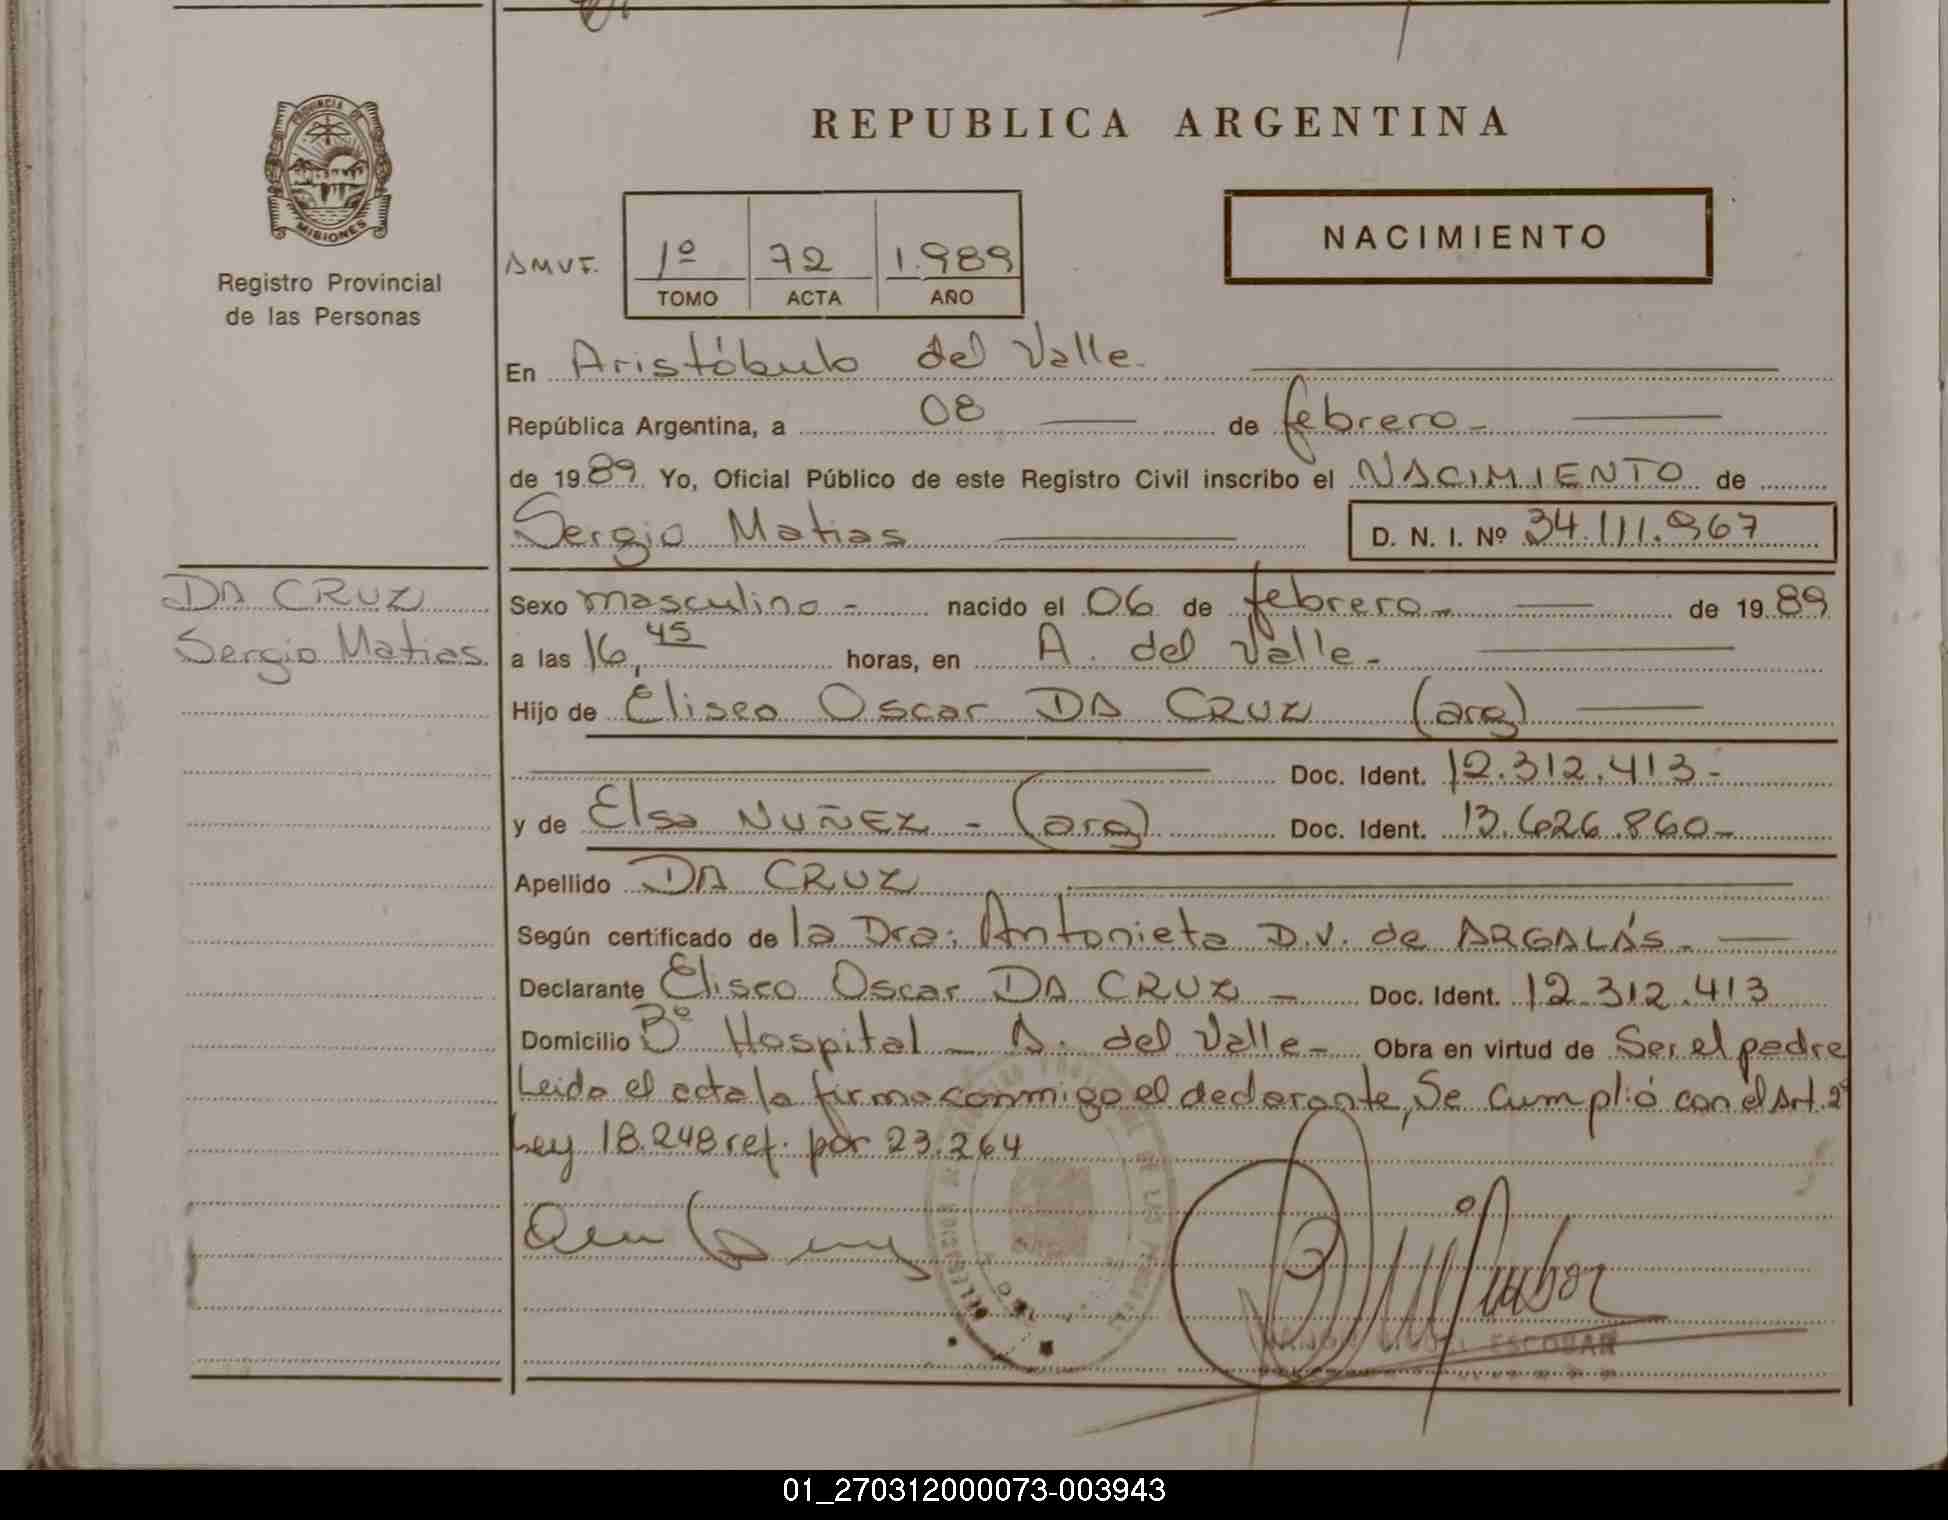 REPUBLICA ARGENTINA
PROVINCIA DE
MISIONES
Registro Provincial
de las Personas
NACIMIENTO
1º 72 1.989
TOMO ACTA AÑO
En Aristóbulo del Valle.
República Argentina, a 08 de febrero
de 1989. Yo, Oficial Público de este Registro Civil inscribo el NACIMIENTO de
Sergio Matias D. N. I. Nº 34.111.967
DA CRUZ
Sergio Matias
Sexo masculino - nacido el 06 de febrero de 1989
a las 16,45 horas, en A. del Valle -
Hijo de Eliseo Oscar DA CRUZ (arg)
Doc. Ident. 12.312.413-
y de Elsa NUÑEZ - (arg) Doc. Ident. 13.626.860-
Apellido DA CRUZ
Según certificado de la Dra: Antonieta D.V. de ARGALÁS.
Declarante Eliseo Oscar DA CRUZ - Doc. Ident. 12.312.413
Domicilio Bº Hospital - A. del Valle - Obra en virtud de Ser el padre
Leida el acta la firma conmigo el declarante, Se cumplió con el Art. 2º
Ley 18.248 ref. por 23.264
ESCOBAR
01_270312000073-003943